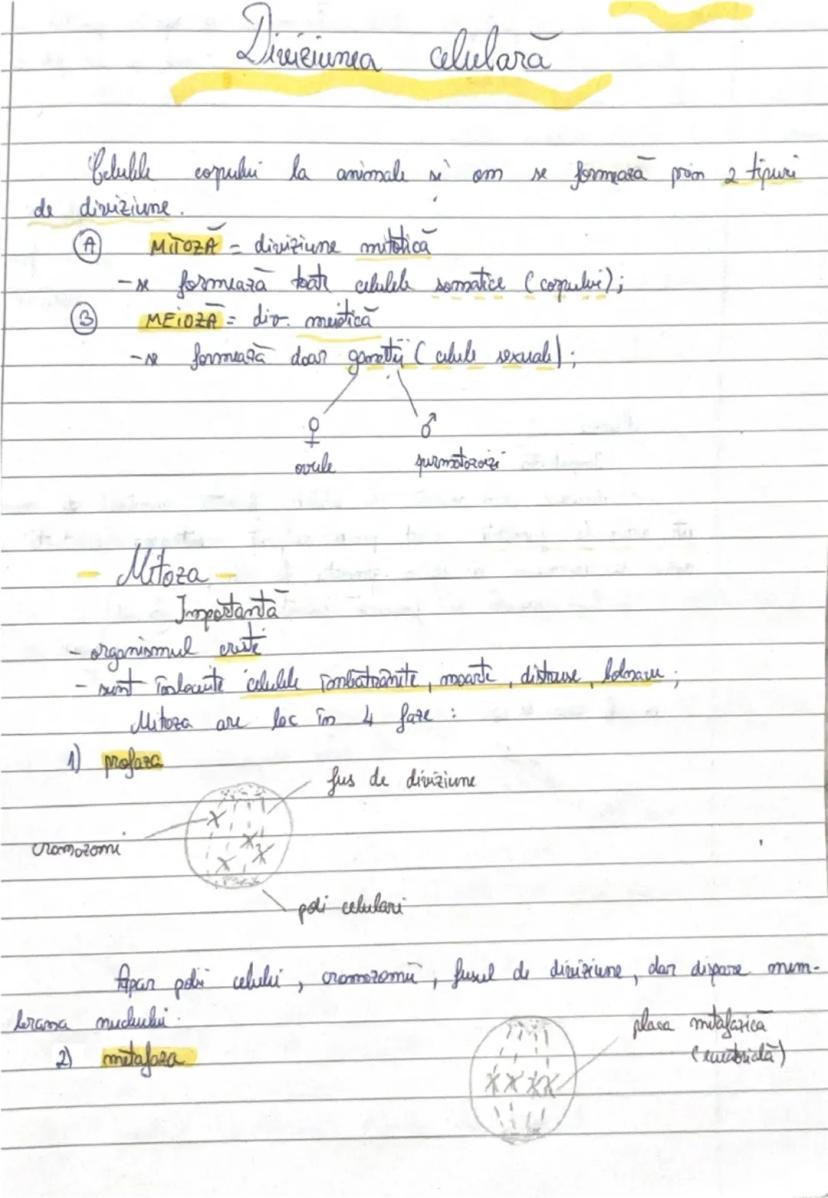 Diviziunea celulară
Celulele corpului la animale si om se formează prin 2 tipuri
de diviziune.
A MITOZĂ = diviziune mitotică
- se formează toate celulele somatice (corpului);
B MEIOZĂ = div. meiotică
- se formează doar gameții (celule sexuale);
♀ ♂
ovule spermatozoizi
- Mitoza -
Importanță
- organismul crește
- sunt înlocuite celulele îmbătrânite, moarte, distruse, bolnave;
Mitoza are loc în 4 faze:
1) profaza
fus de diviziune
cromozomi
poli celulari
Apar polii celulei, cromozomii, fusul de diviziune, dar dispare mem-
brana nucleului.
2) metafaza
placa metafazică
(ecuatorială)